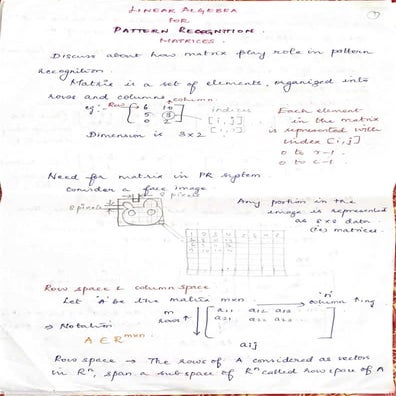 LINEAR ALGEBRA
FOR
PATTERN RECOGNITION.
MATRICES.
Discuss about how matrix play role in pattern
recognition.
Matrix is a set of elements, organized into
rows and columns.
eg: Row → 6 10 column
5 8
0 2
indices
[i, j]
Each element
in the matrix
is represented with
index [i, j]
0 to r-1.
0 to c-1.
Dimension is 3x2
Need for matrix in PR system.
Consider a face image
8 pixels
8 pixels
Any portion in the
image is represented
as 8x8 data
(ie) matrices.
Row space & column space
Let 'A' be the matrix mxn
'n'
column
m
rows
a11 a12 a13 ...
a21
aij
⇒ Notation
A ∈ R^mxn
Row space → The rows of A considered as vectors
in R^n, span a subspace of R^n called row space of A